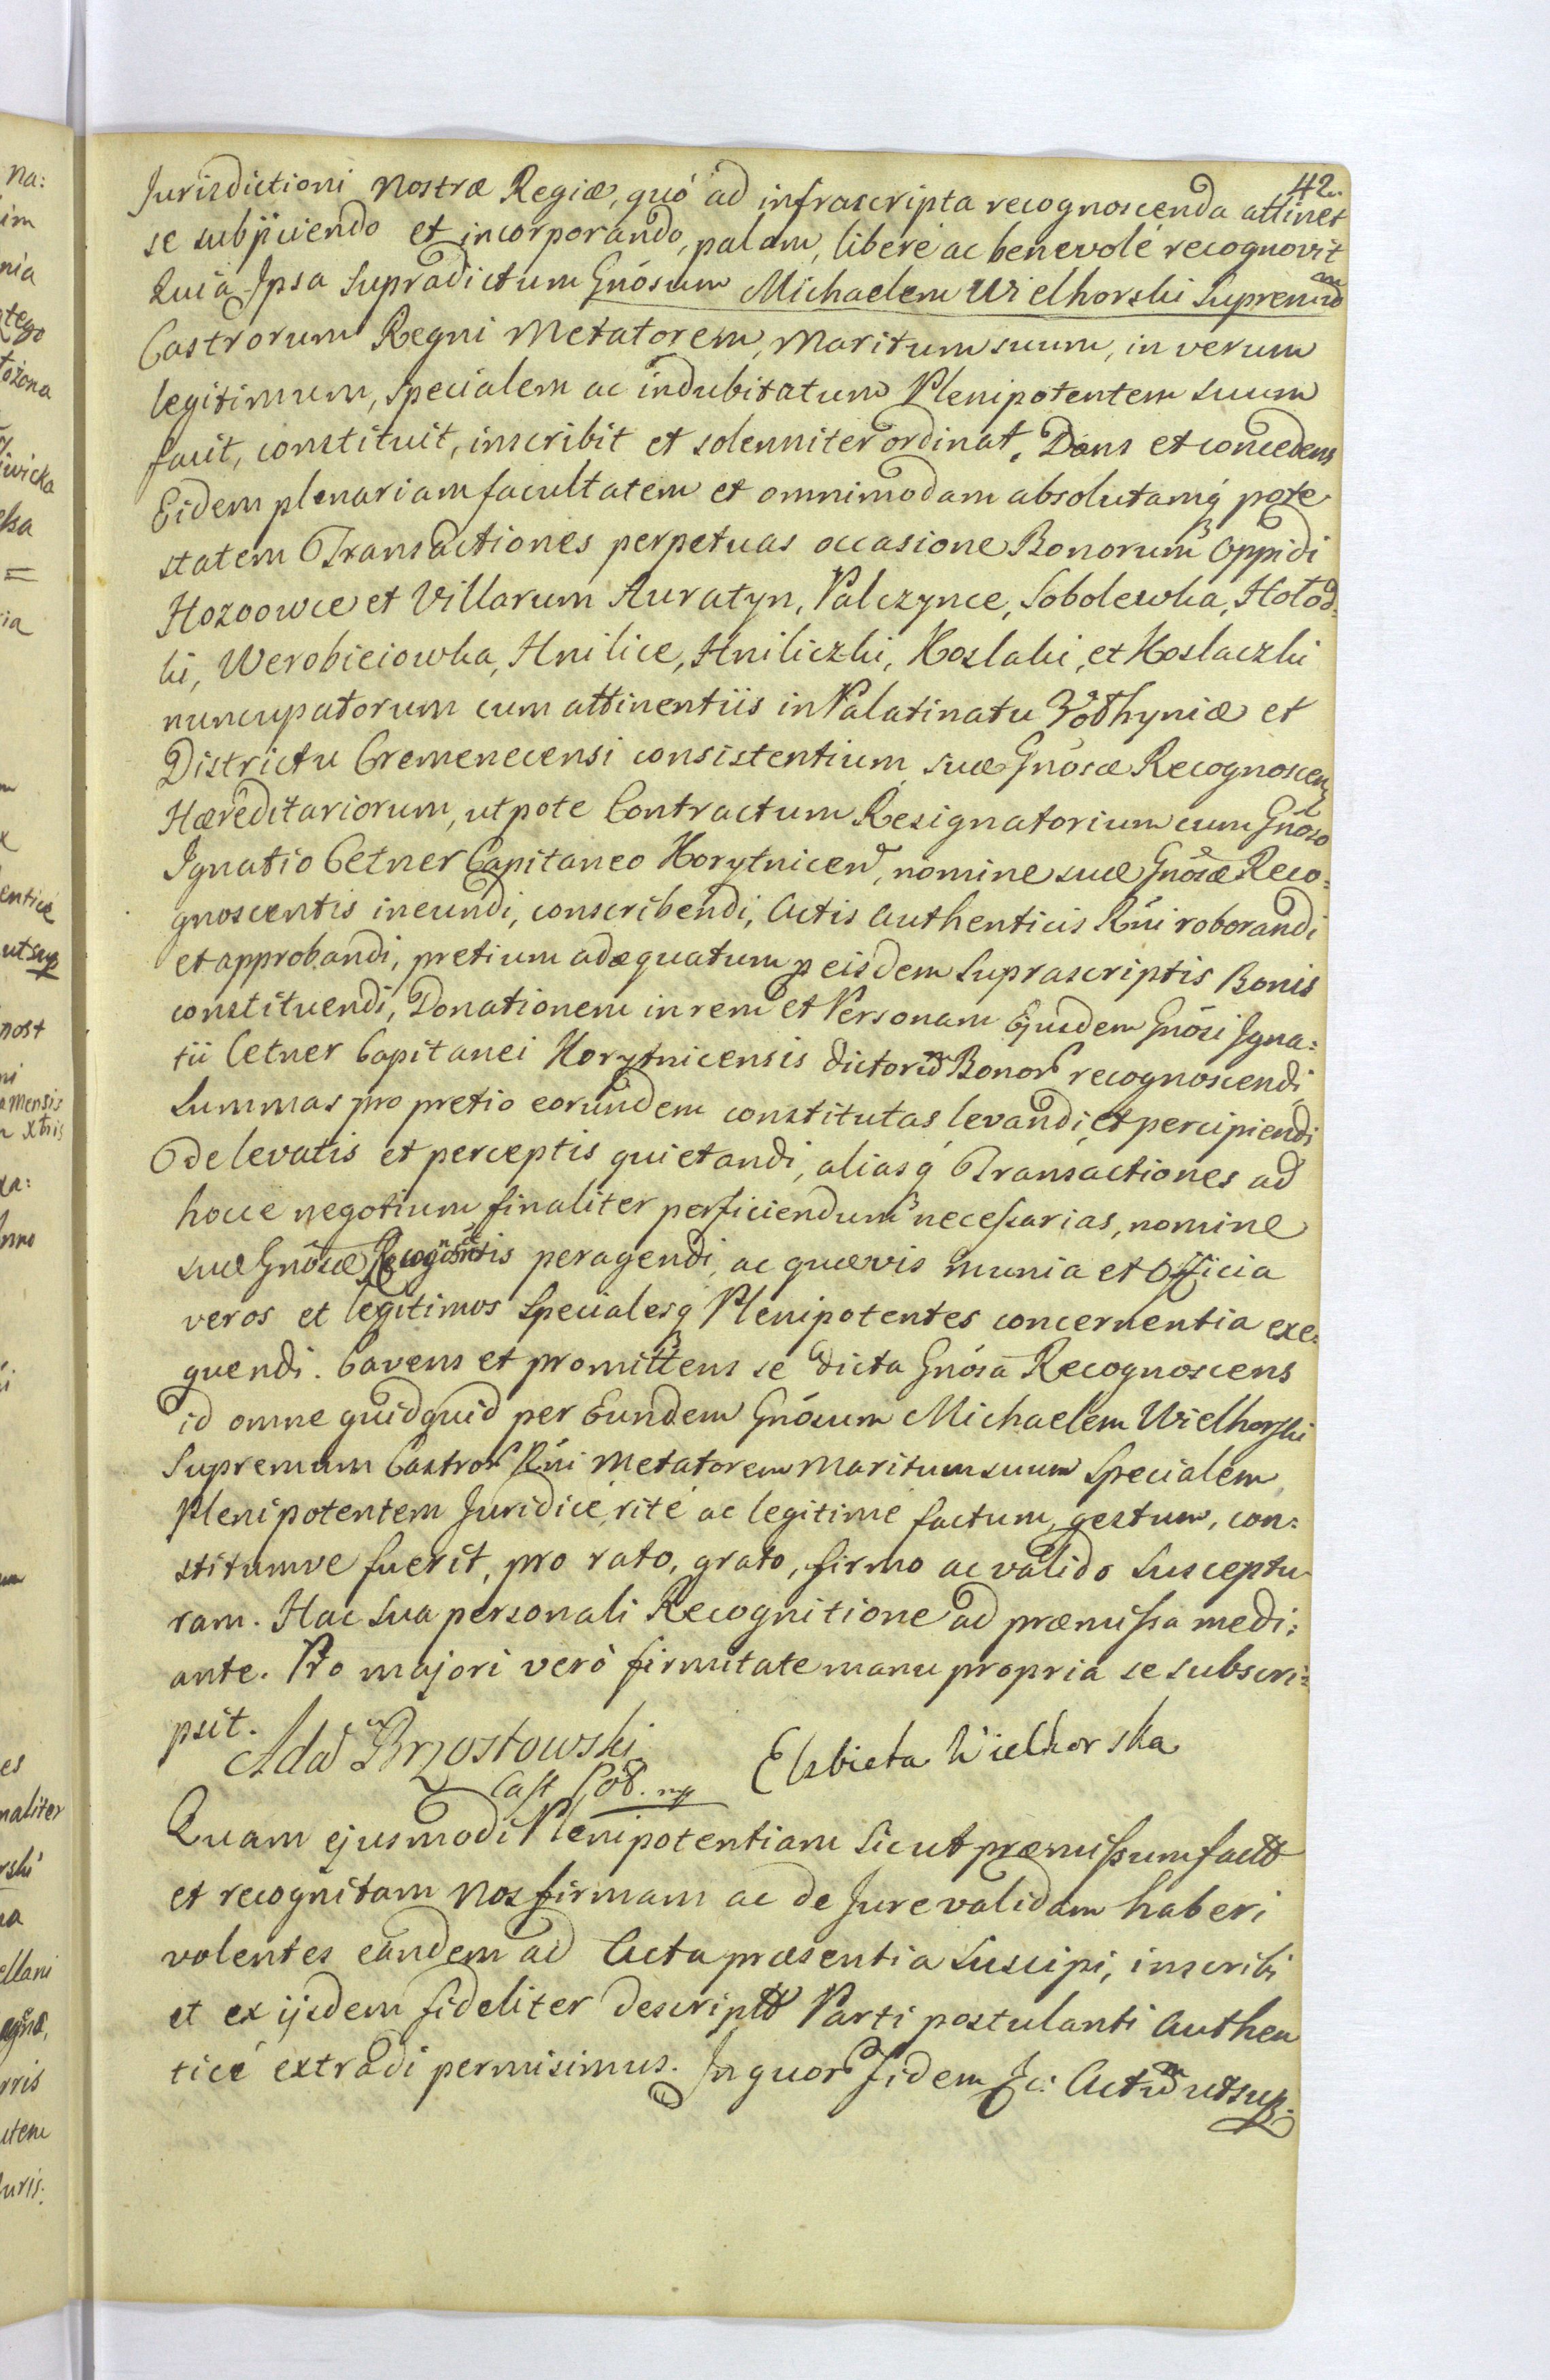 42.
Jurisdictioni Nostræ Regiæ, quó ad infrascripta recognoscenda attinet
se subjiciendo et incorporando, palam, liberé ac benevolé recognovit
Quia Ipsa Supradictum Gnósum Michaelem Wielhorski Supremum
Castrorum Regni Metatorem, Maritum suum, in verum
legitimum, specialem ac indubitatum Plenipotentem suum
facit, constituit, inscribit et solenniter ordinat, Dans et concedens
Eidem plenariam facultatem et omnimodam absolutamq́ pote-
statem Transactiones perpetuas occasione Bonorum Oppidi
Hozoowce et Villarum Auratyn, Palczynce, Sobolewka, Hołod-
ki, Werobieiowka, Hnilice, Hniliczki, Koslaki, et Koslaczki
nuncupatorum cum attinentiis in Palatinatu Vołhyniæ et
Districtu Cremenecensi consistentium, suæ Gnósæ Recognoscen
Hæreditariorum, utpote Contractum Resignatorium cum Gnóso
Ignatio Cetner Capitaneo Korytnicen, nomine suæ Gnósæ Reco:
gnoscentis ineundi, conscribendi, Actis Authenticis Rńi roborandi
et approbandi, pretium adæquatum p eisdem Suprascriptis Bonis
constituendi, Donationem in rem et Personam Ejusdem Gnósi Igna:
tii Cetner Capitanei Korytnicensis dictorum Bonor recognoscendi,
Summas pro pretio eorundem constitutas levandi, et percipiendi
De levatis et perceptis quietandi, aliasq́ Transactiones ad
hocce negotium finaliter perficiendum necessarias, nomine
suæ Gnósæ Recognoscentis peragendi, ac quævis munia et Officia
veros et legitimos Specialesq́ Plenipotentes concernentia exe:
quendi. Cavens et promittens se dicta Gnósa Recognoscens
id omne quidquid per Eundem Gnósum Michaelem Wielhorski
Supremum Castror Rńi Metatorem Maritum suum Specialem
Plenipotentem Juridicé, rité ac legitimé factum, gestum, con:
stitumve fuerit, pro rato, grato, firmo ac valido Susceptu
ram. Hac Sua personali Recognitione ad præmissa medi:
ante. Pro majori veró firmitate manu propria se subscri:
psit.
Adam Brzostowski Elzbieta Wielhorska
Cast Poł. mp
Quam ejusmodi Plenipotentiam Sicut præmissum fact
et recognitam Nos firmam ac de Jure validam haberi
volentes eandem ad Acta præsentia Suscipi, inscribi
et ex ijsdem fideliter descript Parti postulanti Authen
ticé extradi permisimus. In quor Fidem &c: Actum ut sup.